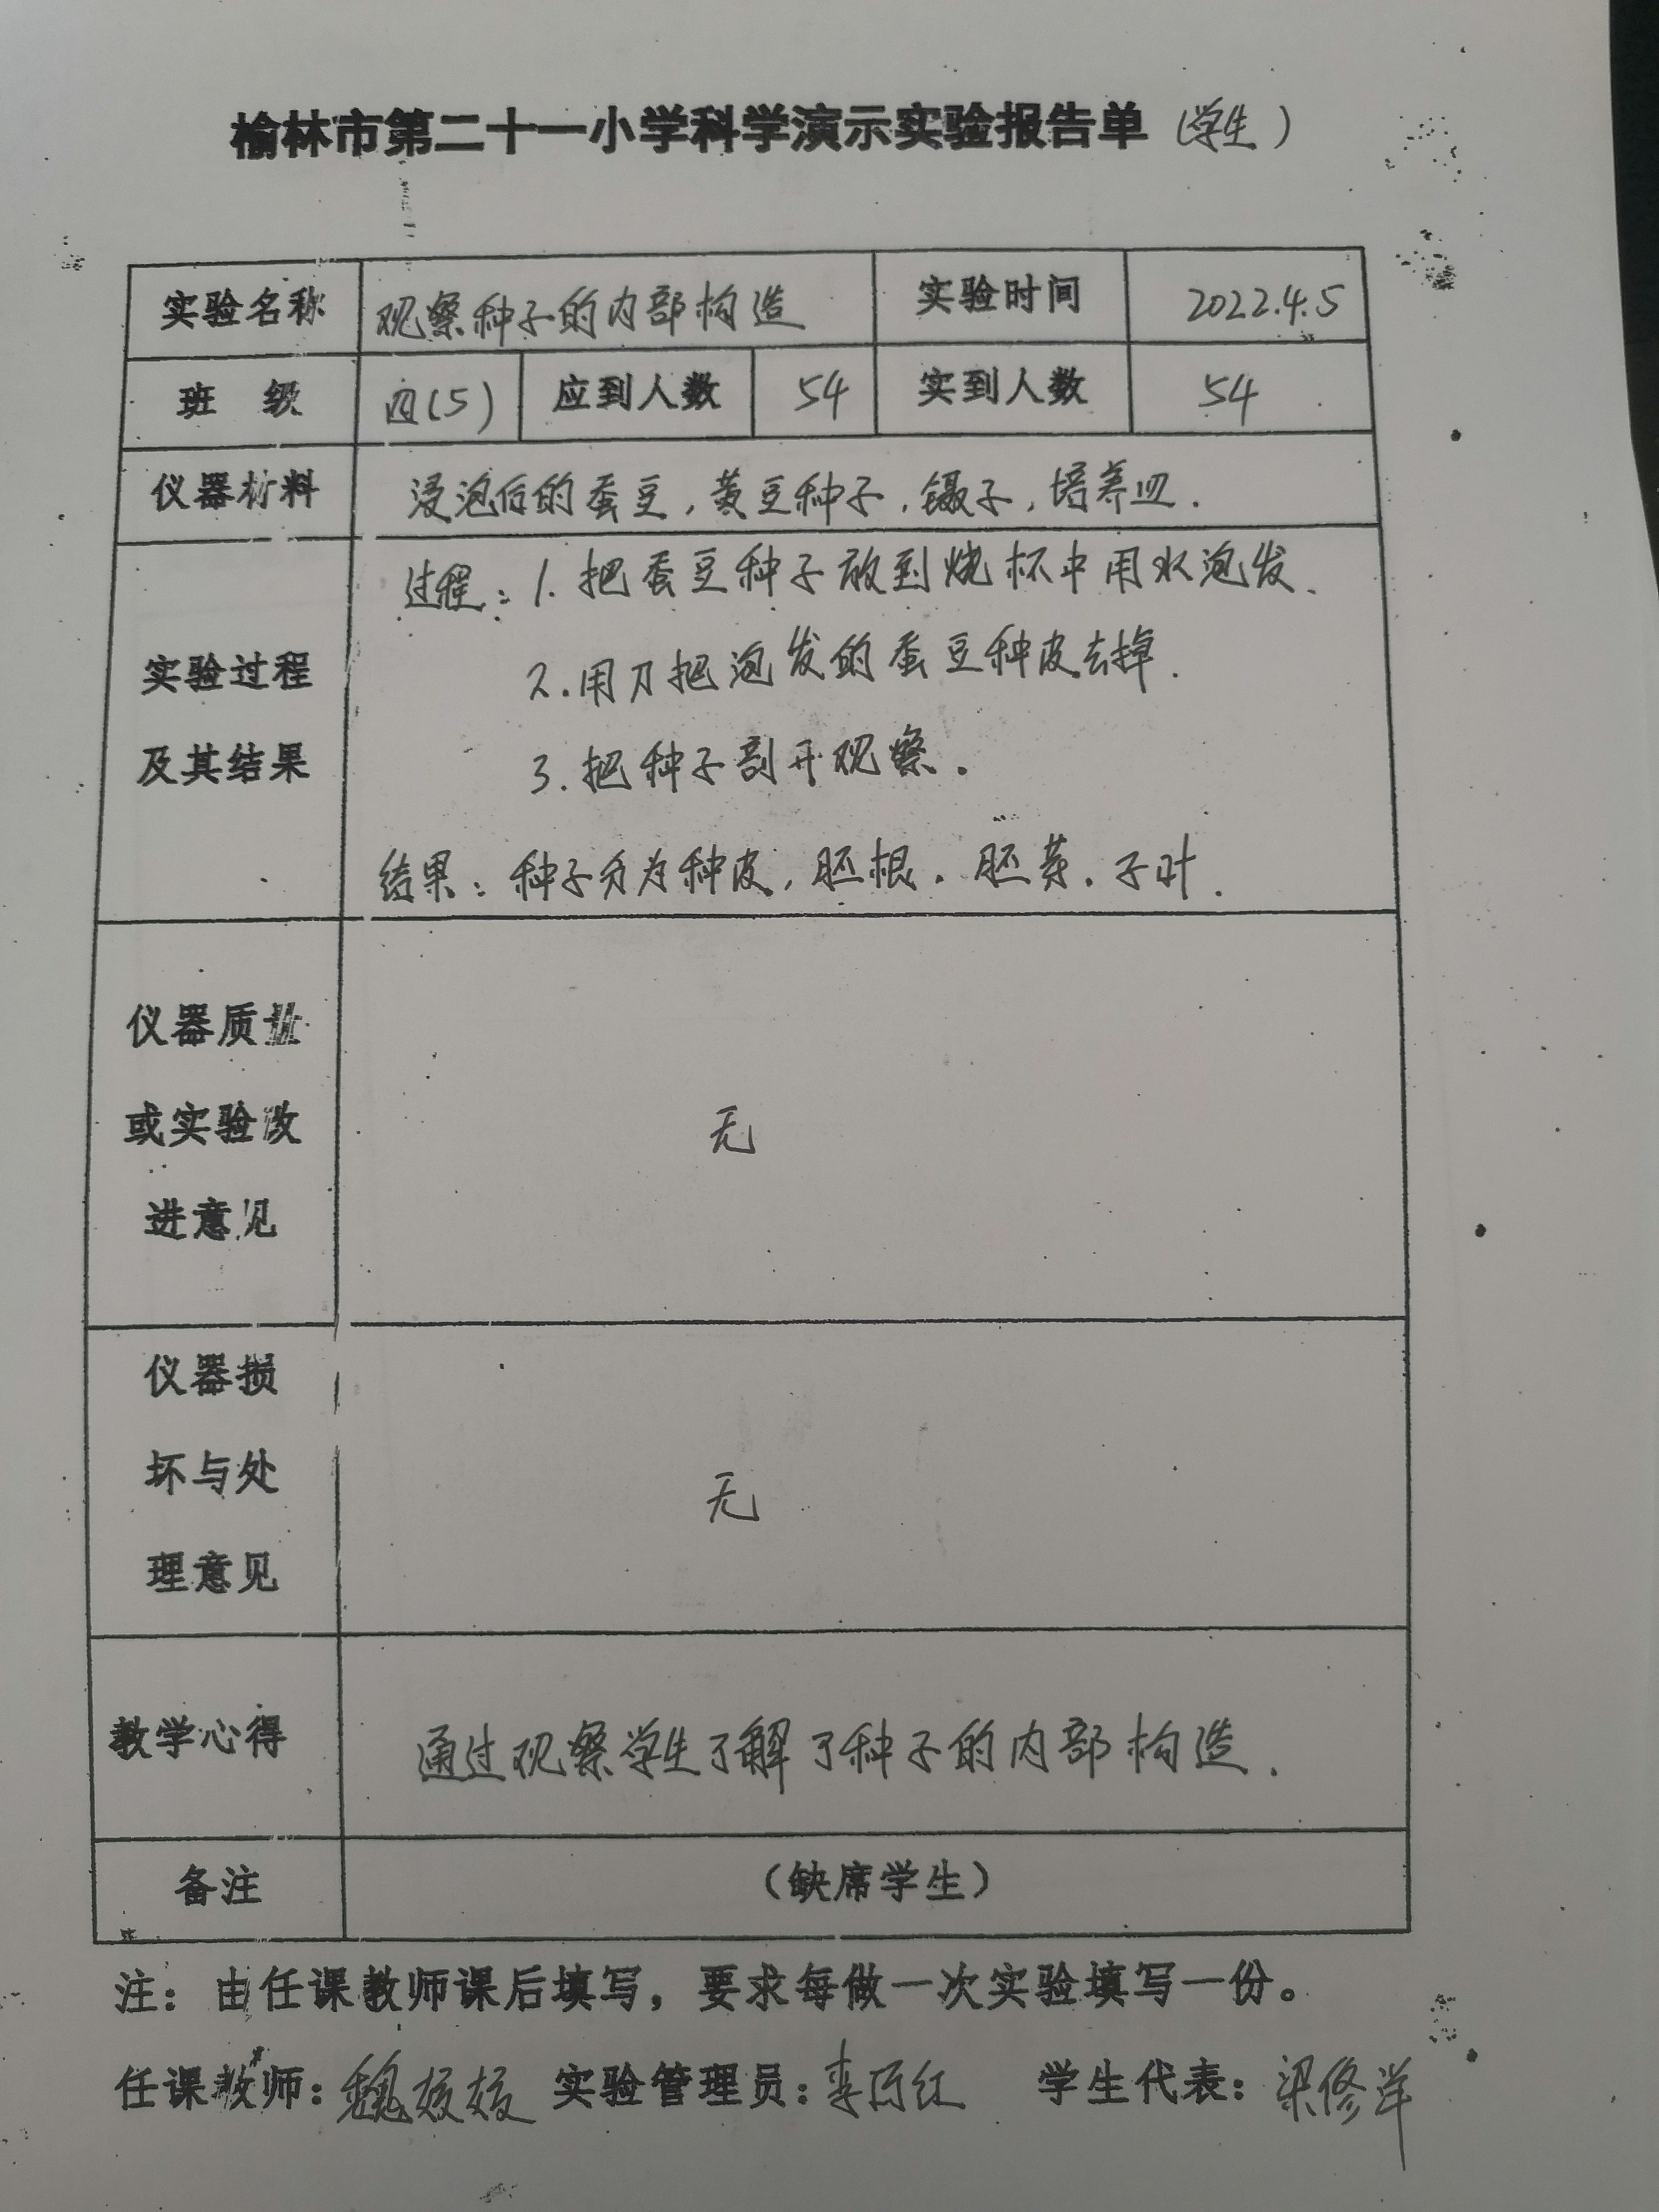 榆林市第二十一小学科学演示实验报告单（学生）
实验名称 观察种子的内部构造 实验时间 2022.4.5
班 级 四(5) 应到人数 54 实到人数 54
仪器材料 浸泡后的蚕豆，黄豆种子，镊子，培养皿.
过程：1.把蚕豆种子放到烧杯中用水泡发.
实验过程 2.用刀把泡发的蚕豆种皮去掉.
及其结果 3.把种子剖开观察.
结果：种子分为种皮，胚根.胚芽.子叶.
仪器质量
或实验改 无
进意见
仪器损
坏与处 无
理意见
教学心得 通过观察学生了解了种子的内部构造.
备注 （缺席学生）
注：由任课教师课后填写，要求每做一次实验填写一份。
任课教师：魏 实验管理员：李 红 学生代表：梁修洋